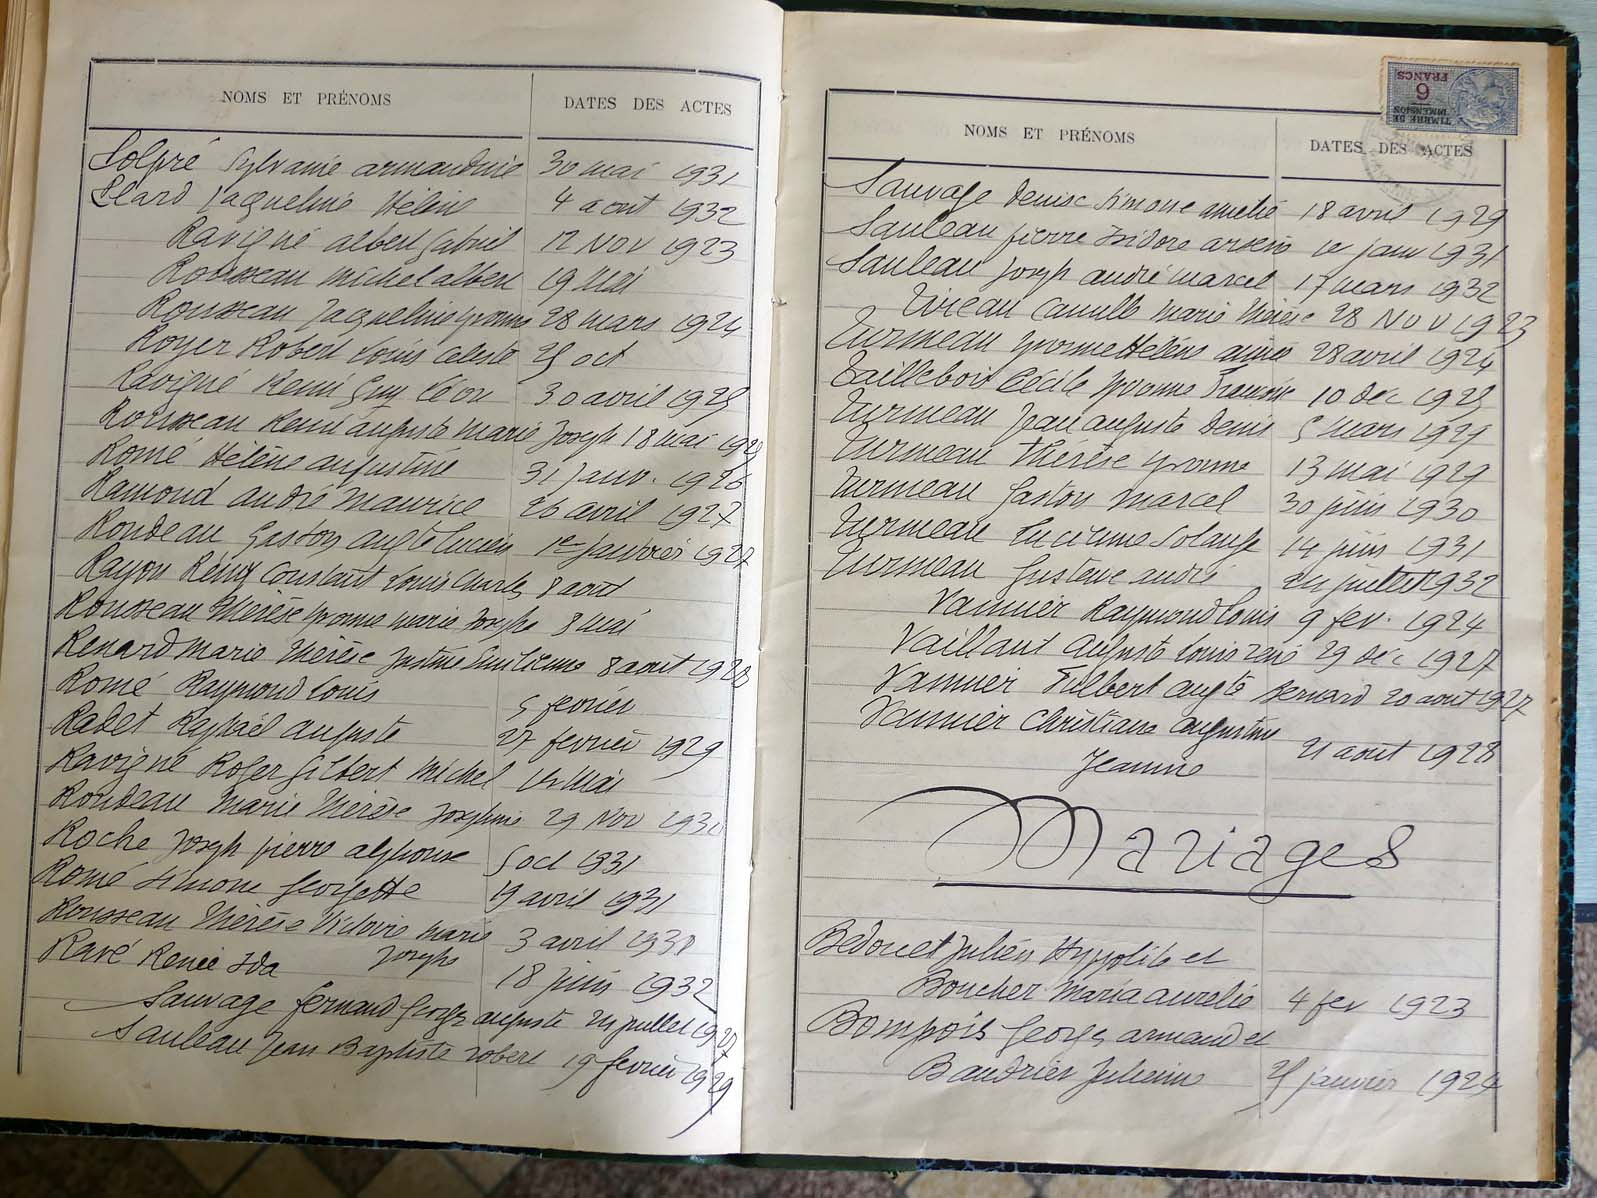 NOMS ET PRÉNOMS
DATES DES ACTES
Sylvanie armandine 30 mai 1931
Jaqueline Hélène 4 aout 1932
Ravigné albert Gabriel 12 Nov 1923
Rousseau michel albert 19 Mai
Rousseau Jaqueline yvonne 28 mars 1924
Royer Robert Louis Celeste 25 oct
Ravigné Remi Guy Léon 30 avril 1925
Rousseau Remi auguste marie Joseph 18 mai
Romé Hélène augustine 31 Janv. 1926
Ramond andré Maurice 26 avril 1927
Rondeau Gaston augte Lucien 1er Janvier 1928
Rayon Rémy Constant Louis Charles 8 aout
Rousseau Thérèse yvonne marie Josephe 8 Mai
Renard marie Thérèse Justine Emilienne 8 aout 1928
Romé Raymond Louis 5 fevrier
Radet Raphaël auguste 27 fevrier 1929
Ravigné Roger Gilbert Michel Mai
Rondeau Marie Thérèse Josephine 29 Nov
Roche Joseph pierre alphonse 5 oct 1931
Romé Simone Georgette 19 avril 1931
Rousseau Thérèse Victoire marie 3 avril
Josephe
Ravé Renée Ida 18 juin 1932
Sauvage fernand Georges auguste juillet
Sauleau Jean Baptiste robert 19 fevrier 1929
TIMBRE DE DIMENSION
6
FRANCS
NOMS ET PRÉNOMS
DATES DES ACTES
Sauvage Denise Simone amélie 18 avril 1929
Sauleau pierre Isidore arsène 1er janv 1931
Sauleau Joseph andré marcel 17 mars 1932
Tireau Camille Marie Thérèse 28 Nov 1923
Turmeau yvonne Hélène aimée 28 avril 1924
Taillebois Cécile yvonne 10 dec 1925
Turmeau Jean auguste Denis 5 mars 1927
Turmeau Thérèse yvonne 13 mai 1929
Turmeau Gaston Marcel 30 juin 1930
Turmeau Lucienne Solange 14 juin 1931
Turmeau Gustave andré juillet 1932
Vannier Raymond Louis 9 fev. 1924
Vaillant Auguste Louis rené 29 déc 1927
Vannier Fulbert augte Bernard 20 aout 1927
Vannier Christiane augustine
Jeanine 21 aout 1928
Mariages
Bedouet Julien Hyppolite et
Boucher Maria aurelie 4 fev 1923
Bompois Georges armand et
Baudrier Julienne 25 janvier 1924